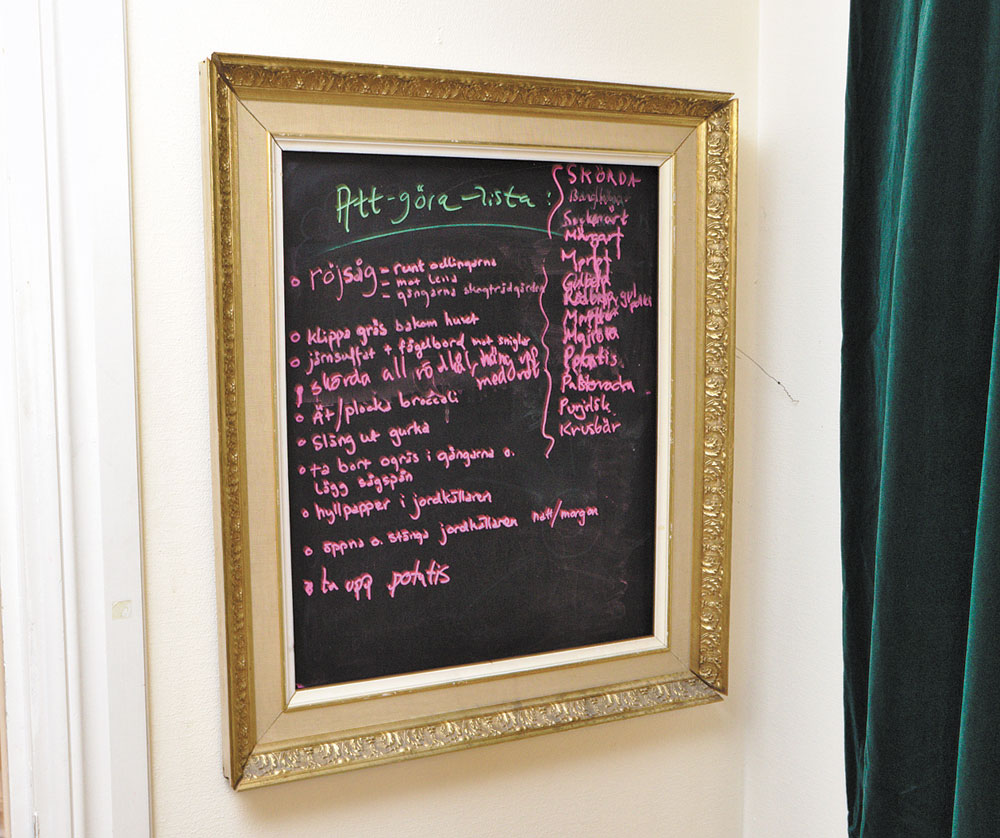 Att-göra-lista:
o röjsåg = runt odlingarna
= mot Lena
= gångarna skogsträdgården
o klippa gräs bakom huset
o järnsulfat + fågelbord mot sniglar
skörda all rödkål, häng upp
morötter
o Ät/plocka broccoli
o släng ut gurka
o ta bort ogräs i gångarna o.
lägg sågspån
o hyllpapper i jordkällaren
o öppna o. stänga jordkällaren natt/morgon
o ta upp potatis
SKÖRDA
Sockerärt
Märgärt
Morot
Gulbeta
Rödbeta, gul,
Morötter
Majrova
Potatis
Palsternacka
Purjolök
Krusbär